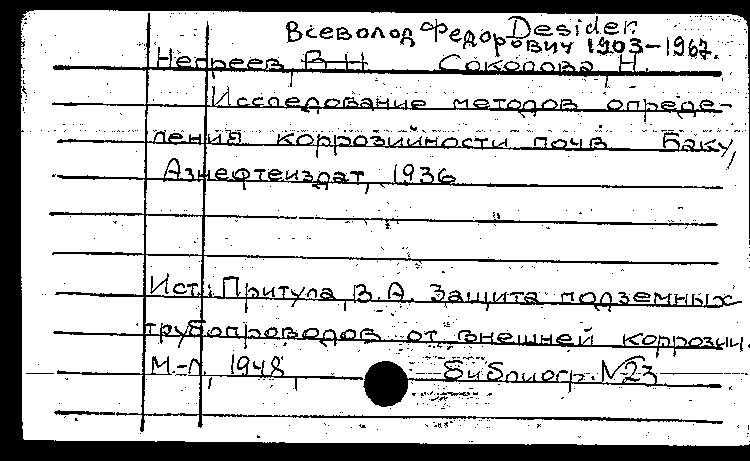 Desider.
Всеволод Федорович 1903-1967.
Негреев, В Н Соколова, Н.
Исследование методов опреде-
ления коррозийности почв Баку,
Азнефтеиздат, 1936
Ист.: Притула, В.А. Защита подземных
трубопроводов от внешней коррозии.
М.-Л, 1948, Библиогр. №23